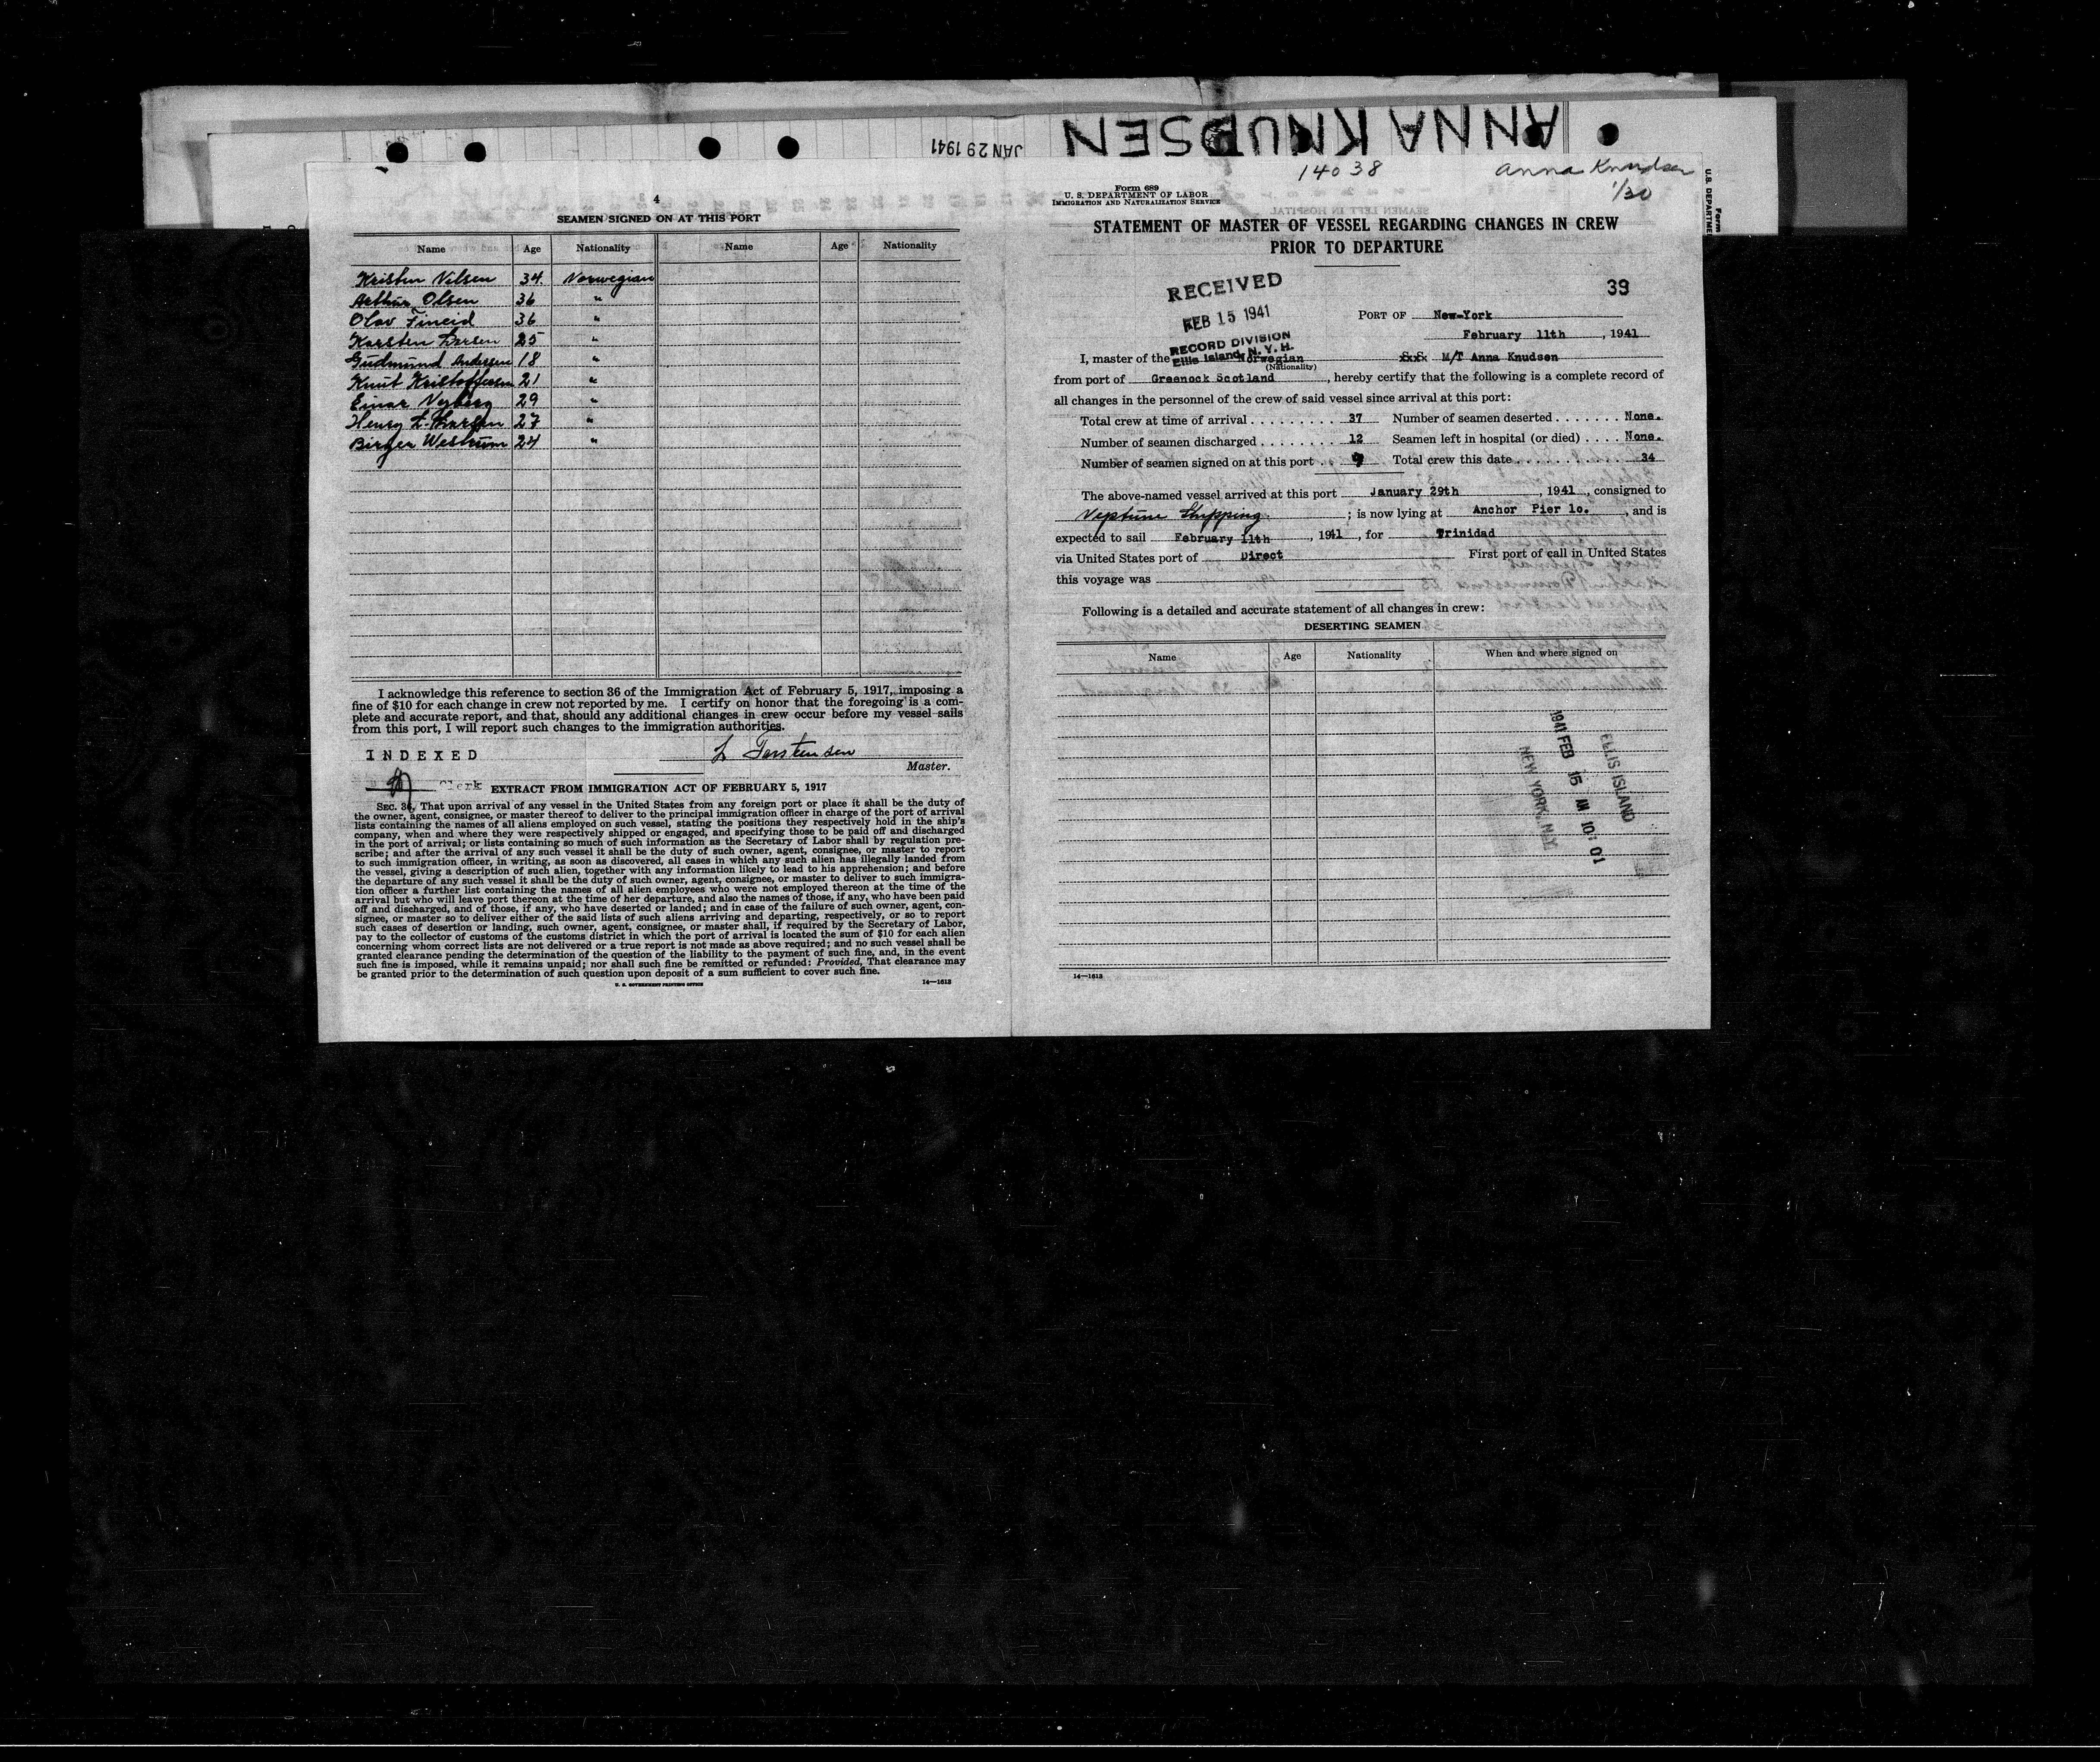 ANNA KNUDSEN
JAN 29 1941
4
SEAMEN SIGNED ON AT THIS PORT
Name Age Nationality Name Age Nationality
Kristen Nilsen 34 Norwegian
Arthur Olsen 36 "
Olav Fineid 36 "
Karsten Larsen 25 "
Gudmund Andersen 18 "
Knut Kristoffersen 21 "
Einar Nyberg 29 "
Henry L. 27 "
Birger Westrum 24 "
I acknowledge this reference to section 36 of the Immigration Act of February 5, 1917, imposing a
fine of $10 for each change in crew not reported by me. I certify on honor that the foregoing is a com-
plete and accurate report, and that, should any additional changes in crew occur before my vessel sails
from this port, I will report such changes to the immigration authorities.
INDEXED
Torstensen
Master.
Clerk
EXTRACT FROM IMMIGRATION ACT OF FEBRUARY 5, 1917
SEC. 36. That upon arrival of any vessel in the United States from any foreign port or place it shall be the duty of
the owner, agent, consignee, or master thereof to deliver to the principal immigration officer in charge of the port of arrival
lists containing the names of all aliens employed on such vessel, stating the positions they respectively hold in the ship's
company, when and where they were respectively shipped or engaged, and specifying those to be paid off and discharged
in the port of arrival; or lists containing so much of such information as the Secretary of Labor shall by regulation pre-
scribe; and after the arrival of any such vessel it shall be the duty of such owner, agent, consignee, or master to report
to such immigration officer, in writing, as soon as discovered, all cases in which any such alien has illegally landed from
the vessel, giving a description of such alien, together with any information likely to lead to his apprehension; and before
the departure of any such vessel it shall be the duty of such owner, agent, consignee, or master to deliver to such immigra-
tion officer a further list containing the names of all alien employees who were not employed thereon at the time of the
arrival but who will leave port thereon at the time of her departure, and also the names of those, if any, who have been paid
off and discharged, and of those, if any, who have deserted or landed; and in case of the failure of such owner, agent, con-
signee, or master so to deliver either of the said lists of such aliens arriving and departing, respectively, or so to report
such cases of desertion or landing, such owner, agent, consignee, or master shall, if required by the Secretary of Labor,
pay to the collector of customs of the customs district in which the port of arrival is located the sum of $10 for each alien
concerning whom correct lists are not delivered or a true report is not made as above required; and no such vessel shall be
granted clearance pending the determination of the question of the liability to the payment of such fine, and, in the event
such fine is imposed, while it remains unpaid; nor shall such fine be remitted or refunded: Provided, That clearance may
be granted prior to the determination of such question upon deposit of a sum sufficient to cover such fine.
U. S. GOVERNMENT PRINTING OFFICE 14—1613
14038
Anna Knudsen
1/30
Form 689
U. S. DEPARTMENT OF LABOR
IMMIGRATION AND NATURALIZATION SERVICE
STATEMENT OF MASTER OF VESSEL REGARDING CHANGES IN CREW
PRIOR TO DEPARTURE
RECEIVED
FEB 15 1941
RECORD DIVISION
Ellis Island, N. Y. H.
39
PORT OF New-York
February 11th, 1941
I, master of the Norwegian xxxx M/T Anna Knudsen
(Nationality)
from port of Greenock Scotland, hereby certify that the following is a complete record of
all changes in the personnel of the crew of said vessel since arrival at this port:
Total crew at time of arrival . . . . . . . . . 37 Number of seamen deserted . . . . . . . None.
Number of seamen discharged . . . . . . . . 12 Seamen left in hospital (or died) . . . . None.
Number of seamen signed on at this port . . 9 Total crew this date . . . . . . . . . . 34
The above-named vessel arrived at this port January 29th, 1941, consigned to
Neptune Shipping ; is now lying at Anchor Pier 1o., and is
expected to sail February 11th, 1941, for Trinidad
via United States port of Direct First port of call in United States
this voyage was
Following is a detailed and accurate statement of all changes in crew:
DESERTING SEAMEN
Name Age Nationality When and where signed on
ELLIS ISLAND
1941 FEB 15 AM 10:01
NEW YORK, N.Y.
14—1613
Form
U.S. DEPARTME